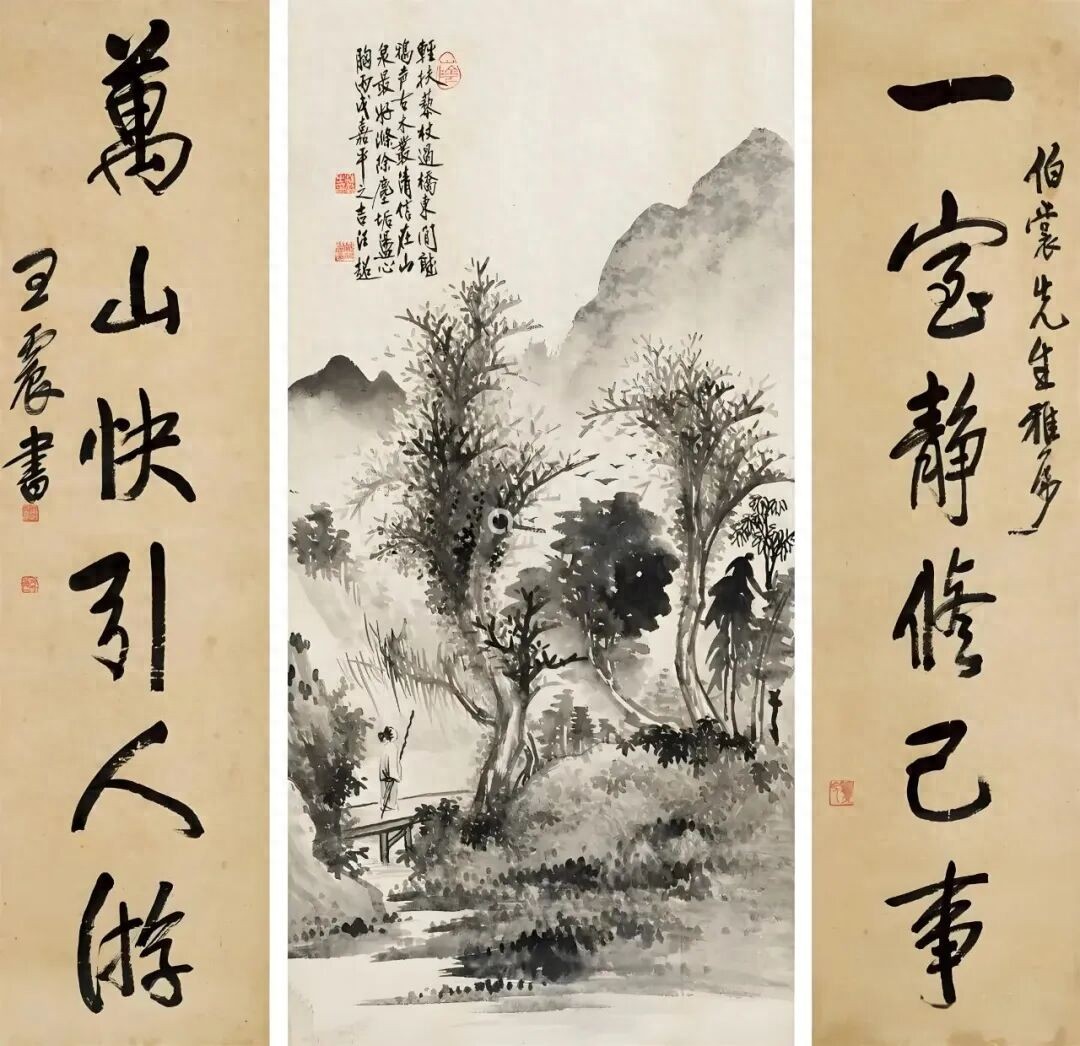 伯裳先生雅属
一室靜修己事
輕扶藜杖過橋東閒聽
鴉声古木叢清信在山
泉最好滌除塵垢盪心
胸丙戌嘉平之吉
萬山快引人游
王震書